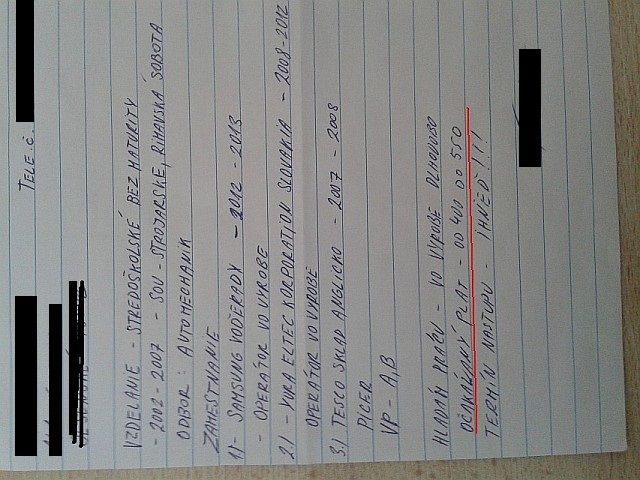 TELE.Č.
VZDELANIE - STREDOŠKOLSKÉ BEZ MATURITY
- 2002 - 2007 - SOU - STROJARSKE, RIMAVSKÁ SOBOTA
ODBOR: AUTOMECHANIK
ZAMESTNANIE
1) - SAMSUNG VODERADY - 2012 - 2013
- OPERÁTOR VO VYROBE
2.) - YURA ELTEC KORPORATION SLOVAKIA - 2008 - 2012
OPERÁTOR VO VYROBE
3.) TESCO SKLAD ANGLICKO - 2007 - 2008
PÍCER
VP - A,B
HLADÁM PRÁCU - VO VÝROBE DLHODOBO
OČAKÁVANÝ PLAT - OD 400 DO 550
TERMÍN NASTUPU - IHNEĎ!!!